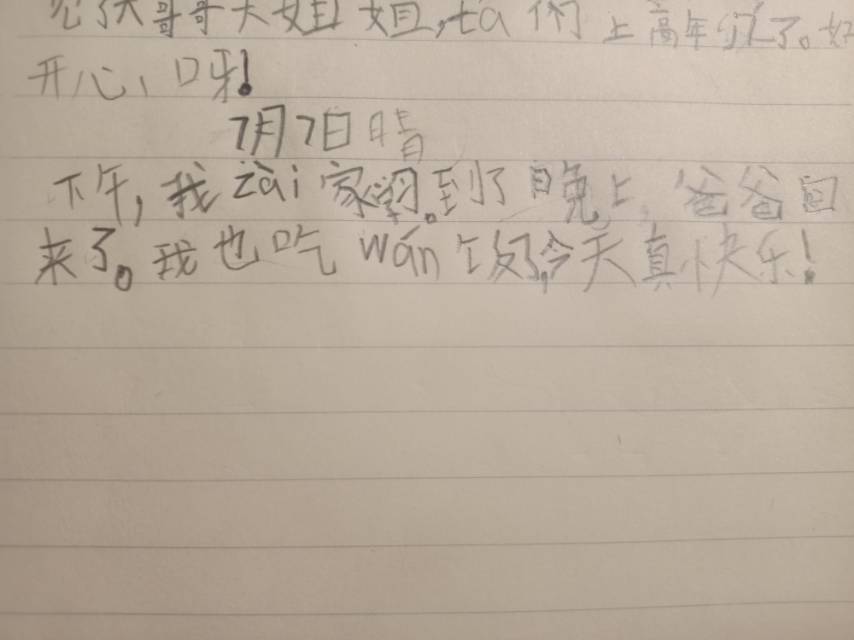 见了大哥哥大姐姐,tā们上高年级了。好
开心、呀!
7月7日 晴
下午,我zài家学习。到了晚上,爸爸回
来了。我也吃wán饭了,今天真快乐!